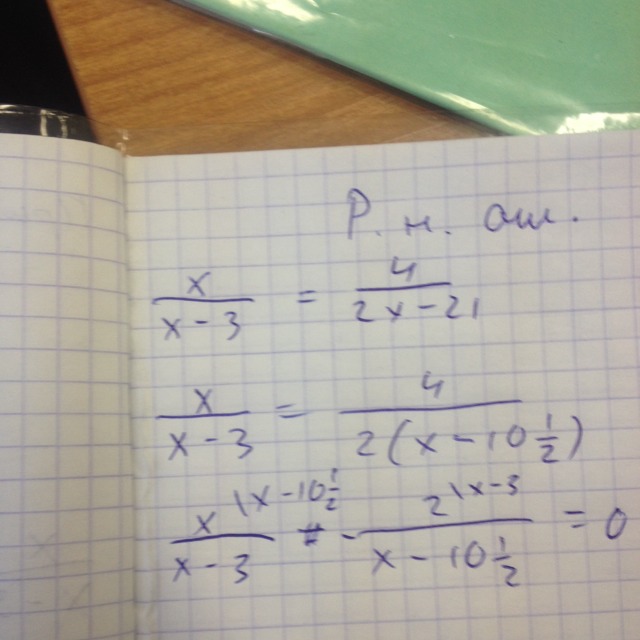 Р. н. ош.
x/(x-3) = 4/(2x-21)
x/(x-3) = 4/(2(x-10 1/2))
x\x-10 1/2 /(x-3) - 2\x-3 /(x-10 1/2) = 0